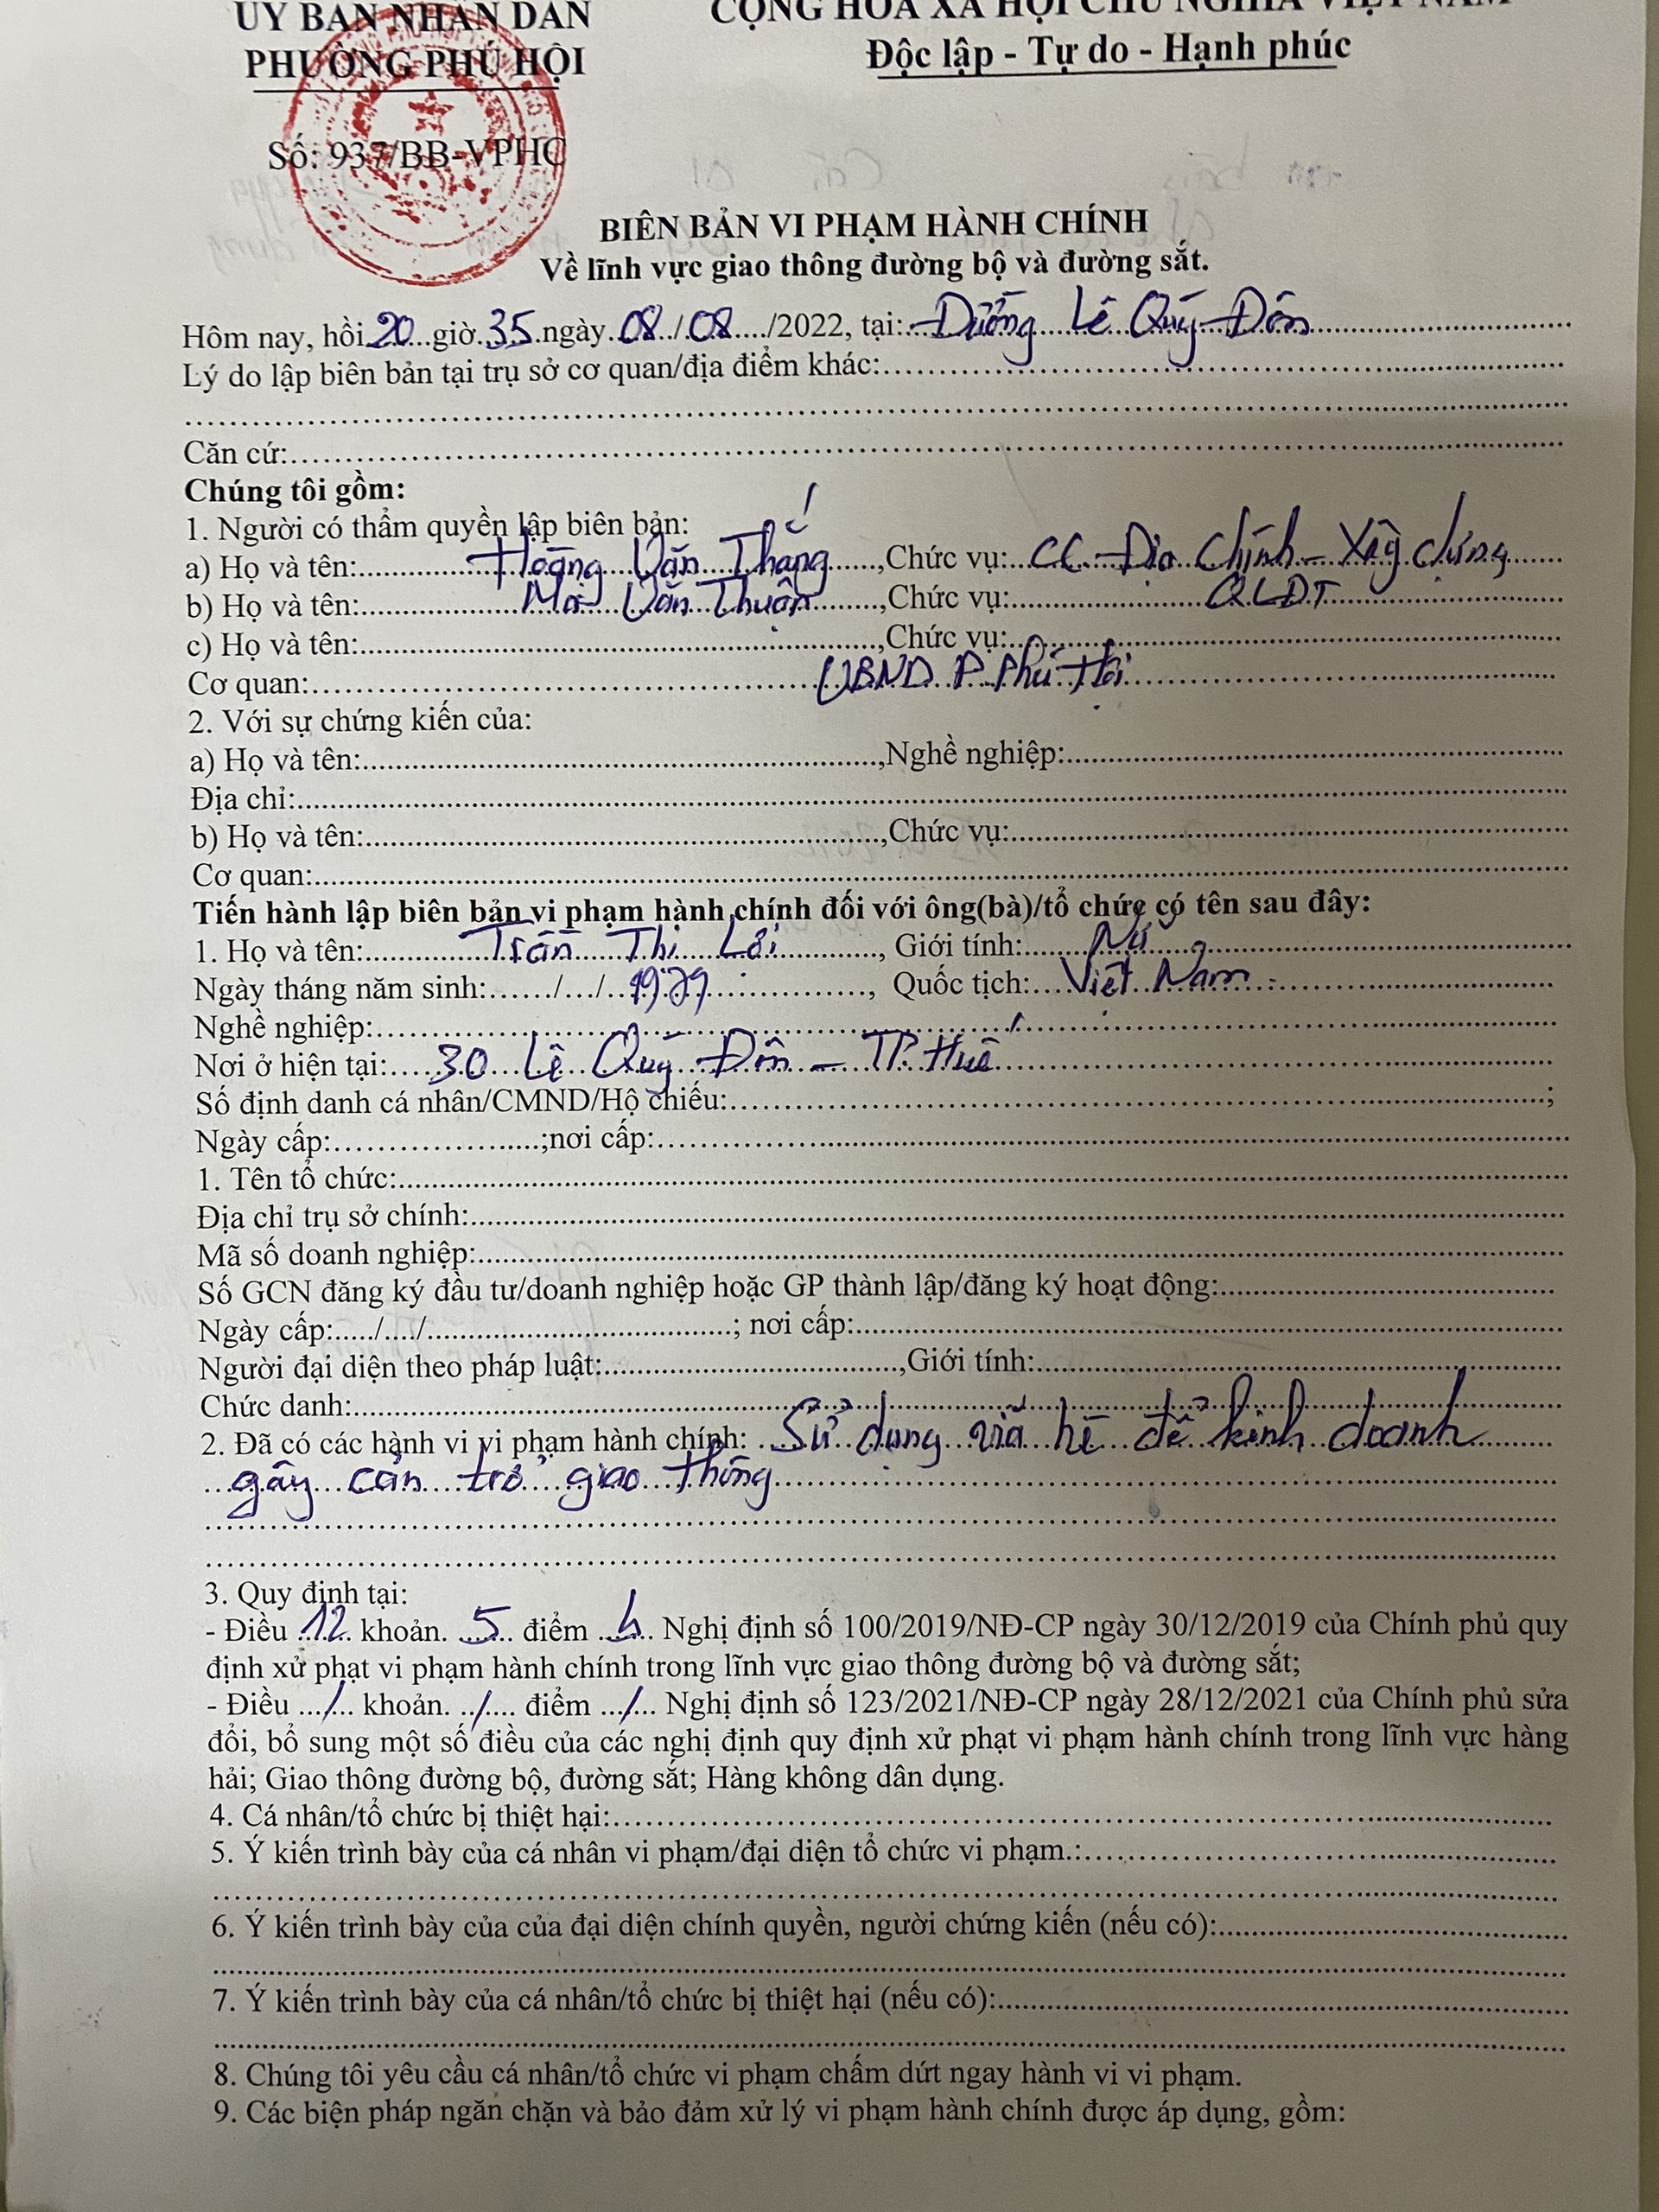 ỦY BAN NHÂN DÂN
PHƯỜNG PHÚ HỘI
CỘNG HÒA XÃ HỘI CHỦ NGHĨA VIỆT NAM
Độc lập - Tự do - Hạnh phúc
Số: 937/BB-VPHC
BIÊN BẢN VI PHẠM HÀNH CHÍNH
Về lĩnh vực giao thông đường bộ và đường sắt.
Hôm nay, hồi 20 giờ 35 ngày 08/08/2022, tại: Đường Lê Quý Đôn
Lý do lập biên bản tại trụ sở cơ quan/địa điểm khác:
Căn cứ:
Chúng tôi gồm:
1. Người có thẩm quyền lập biên bản:
a) Họ và tên: Hoàng Văn Thắng, Chức vụ: CC Địa Chính - Xây dựng
b) Họ và tên: Mai Văn Thuận, Chức vụ: QLĐT
c) Họ và tên:, Chức vụ:
Cơ quan: UBND P. Phú Hội
2. Với sự chứng kiến của:
a) Họ và tên:, Nghề nghiệp:
Địa chỉ:
b) Họ và tên:, Chức vụ:
Cơ quan:
Tiến hành lập biên bản vi phạm hành chính đối với ông(bà)/tổ chức có tên sau đây:
1. Họ và tên: Trần Thị Lợi, Giới tính: Nữ
Ngày tháng năm sinh: / / 1979, Quốc tịch: Việt Nam
Nghề nghiệp:
Nơi ở hiện tại: 30 Lê Quý Đôn - TP. Huế
Số định danh cá nhân/CMND/Hộ chiếu: ;
Ngày cấp: ;nơi cấp:
1. Tên tổ chức:
Địa chỉ trụ sở chính:
Mã số doanh nghiệp:
Số GCN đăng ký đầu tư/doanh nghiệp hoặc GP thành lập/đăng ký hoạt động:
Ngày cấp:...../..../ ; nơi cấp:
Người đại diện theo pháp luật:, Giới tính:
Chức danh:
2. Đã có các hành vi vi phạm hành chính: Sử dụng vỉa hè để kinh doanh
gây cản trở giao thông
3. Quy định tại:
- Điều 12 khoản. 5 điểm b Nghị định số 100/2019/NĐ-CP ngày 30/12/2019 của Chính phủ quy
định xử phạt vi phạm hành chính trong lĩnh vực giao thông đường bộ và đường sắt;
- Điều / khoản. / điểm / Nghị định số 123/2021/NĐ-CP ngày 28/12/2021 của Chính phủ sửa
đổi, bổ sung một số điều của các nghị định quy định xử phạt vi phạm hành chính trong lĩnh vực hàng
hải; Giao thông đường bộ, đường sắt; Hàng không dân dụng.
4. Cá nhân/tổ chức bị thiệt hại:
5. Ý kiến trình bày của cá nhân vi phạm/đại diện tổ chức vi phạm.:
6. Ý kiến trình bày của của đại diện chính quyền, người chứng kiến (nếu có):
7. Ý kiến trình bày của cá nhân/tổ chức bị thiệt hại (nếu có):
8. Chúng tôi yêu cầu cá nhân/tổ chức vi phạm chấm dứt ngay hành vi vi phạm.
9. Các biện pháp ngăn chặn và bảo đảm xử lý vi phạm hành chính được áp dụng, gồm: